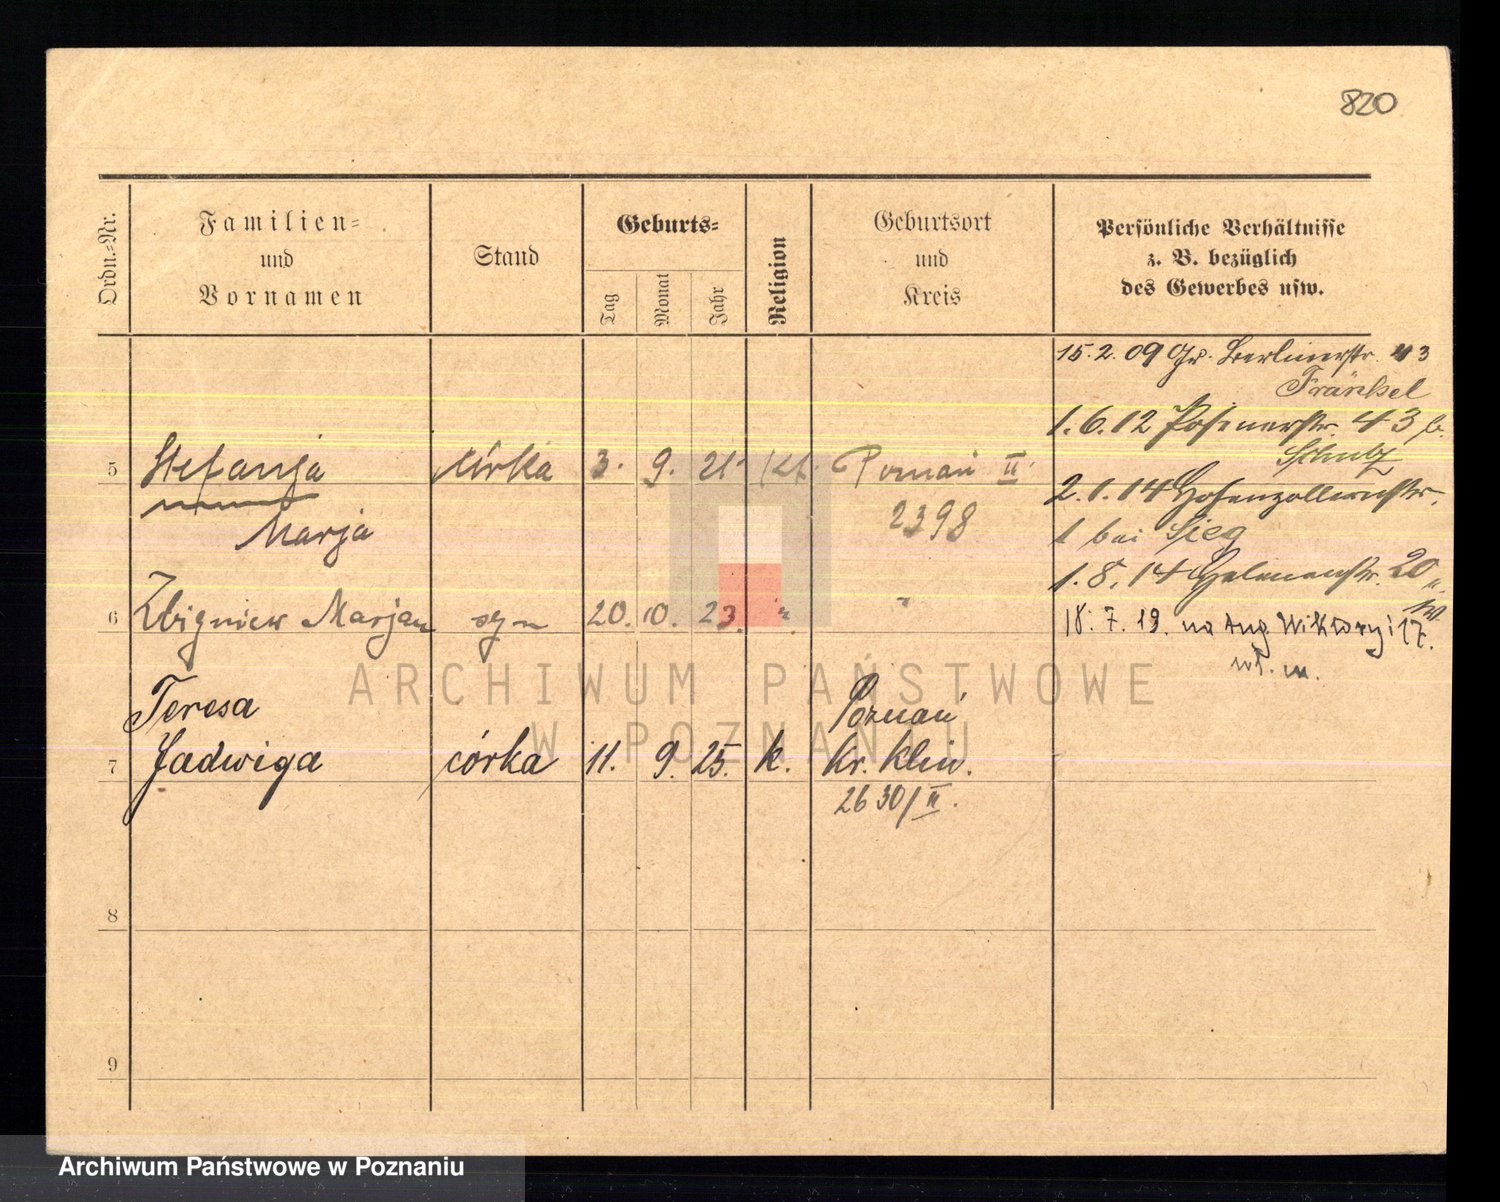 820
Ordn.-Nr.
Familien-
und
Vornamen
Stand
Geburts-
Tag
Monat
Jahr
Religion
Geburtsort
und
Kreis
Persönliche Verhältnisse
z. B. bezüglich
des Gewerbes usw.
15.2.09 Gr. Berlinerstr. 43
Fränkel
1.6.12 Posenerstr. 43 b.
Schulz
5 Stefanja córka 3. 9. 21. kt. Poznań II.
2.1.14 Hohenzollernstr.
Marja 2398
1 bei Sieg
1.8.14 Helenenstr. 20
6 Zbigniew Marjan syn 20. 10. 23. " "
18.7.19. na Aug. Wiktoryi 17.
wł. m.
ARCHIWUM PAŃSTWOWE
W POZNANIU
Teresa Poznań
7 Jadwiga córka 11. 9. 25. k. Kr. Klin.
2630/II.
8
9
Archiwum Państwowe w Poznaniu